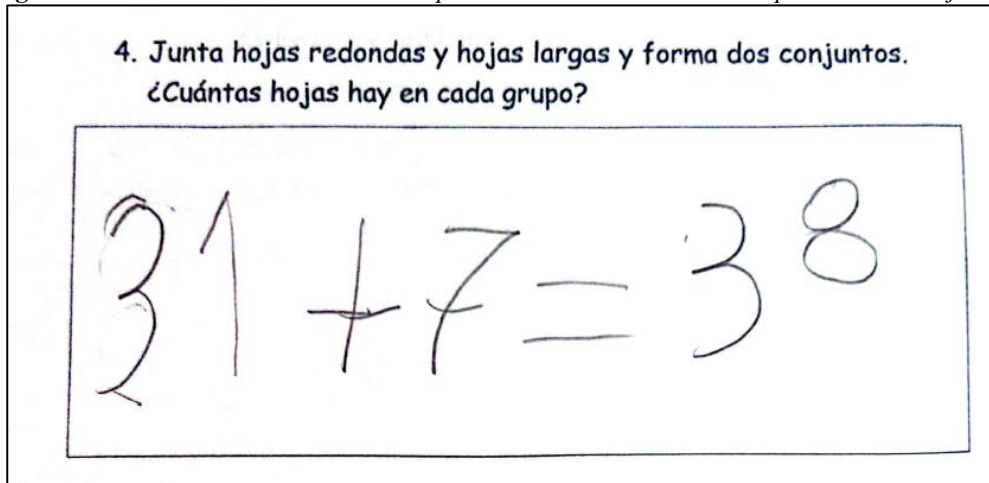 4. Junta hojas redondas y hojas largas y forma dos conjuntos.
¿Cuántas hojas hay en cada grupo?
31 + 7 = 38